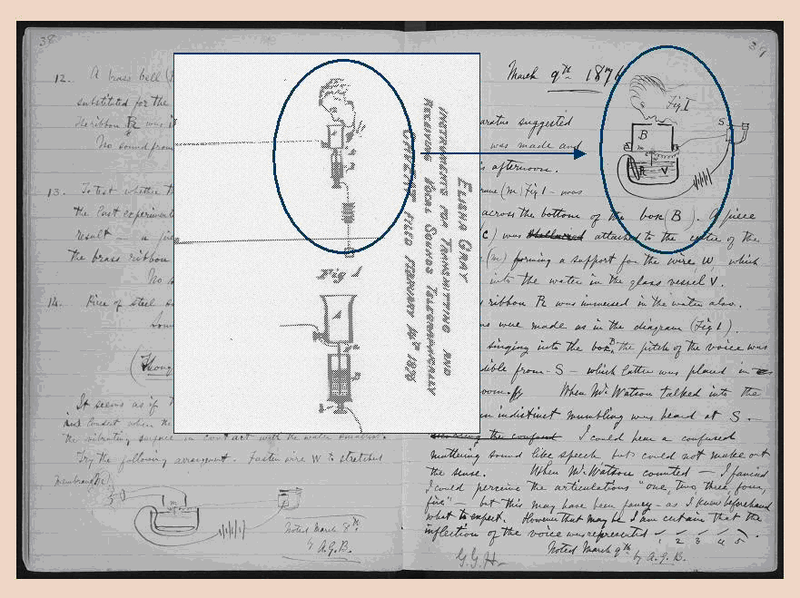 38
12. A brass bell
substituted for the
the ribbon R was
No sound from
13. To test whether
the last experiment
result — a
the brass ribbon
No
14. Piece of steel
It seems as if
and contact when the
the vibrating surface in contact with the water
Try the following arrangement. Fasten wire W to stretched
membrane
Noted March 8th
by A.G.B.
ELISHA GRAY
INSTRUMENTS FOR TRANSMITTING AND
RECEIVING VOCAL SOUNDS TELEGRAPHICALLY
CAVEAT FILED FEBRUARY 14th 1876
Fig 1
39
March 9th 1876
Fig 1
S
B
R V
apparatus suggested
was made and
afternoon.
(m) fig 1 — was
across the bottom of the box (B). A piece
(C) was attached to the centre of the
(m) forming a support for the wire, W which
into the water in the glass vessel V.
ribbon R was immersed in the water also.
were made as in the diagram (Fig 1).
singing into the box B the pitch of the voice was
audible from S — which latter was placed in
room. When Mr. Watson talked into the
an indistinct mumbling was heard at S.
I could hear a confused
muttering sound like speech but could not make out
the sense. When Mr. Watson counted — I fancied
I could perceive the articulations "one, two, three, four,
five" — but this may have been fancy — as I knew beforehand
what to expect. However that may be I am certain that the
inflection of the voice was represented
1 2 3 4 5
G.G.H. Noted March 9th by A.G.B.